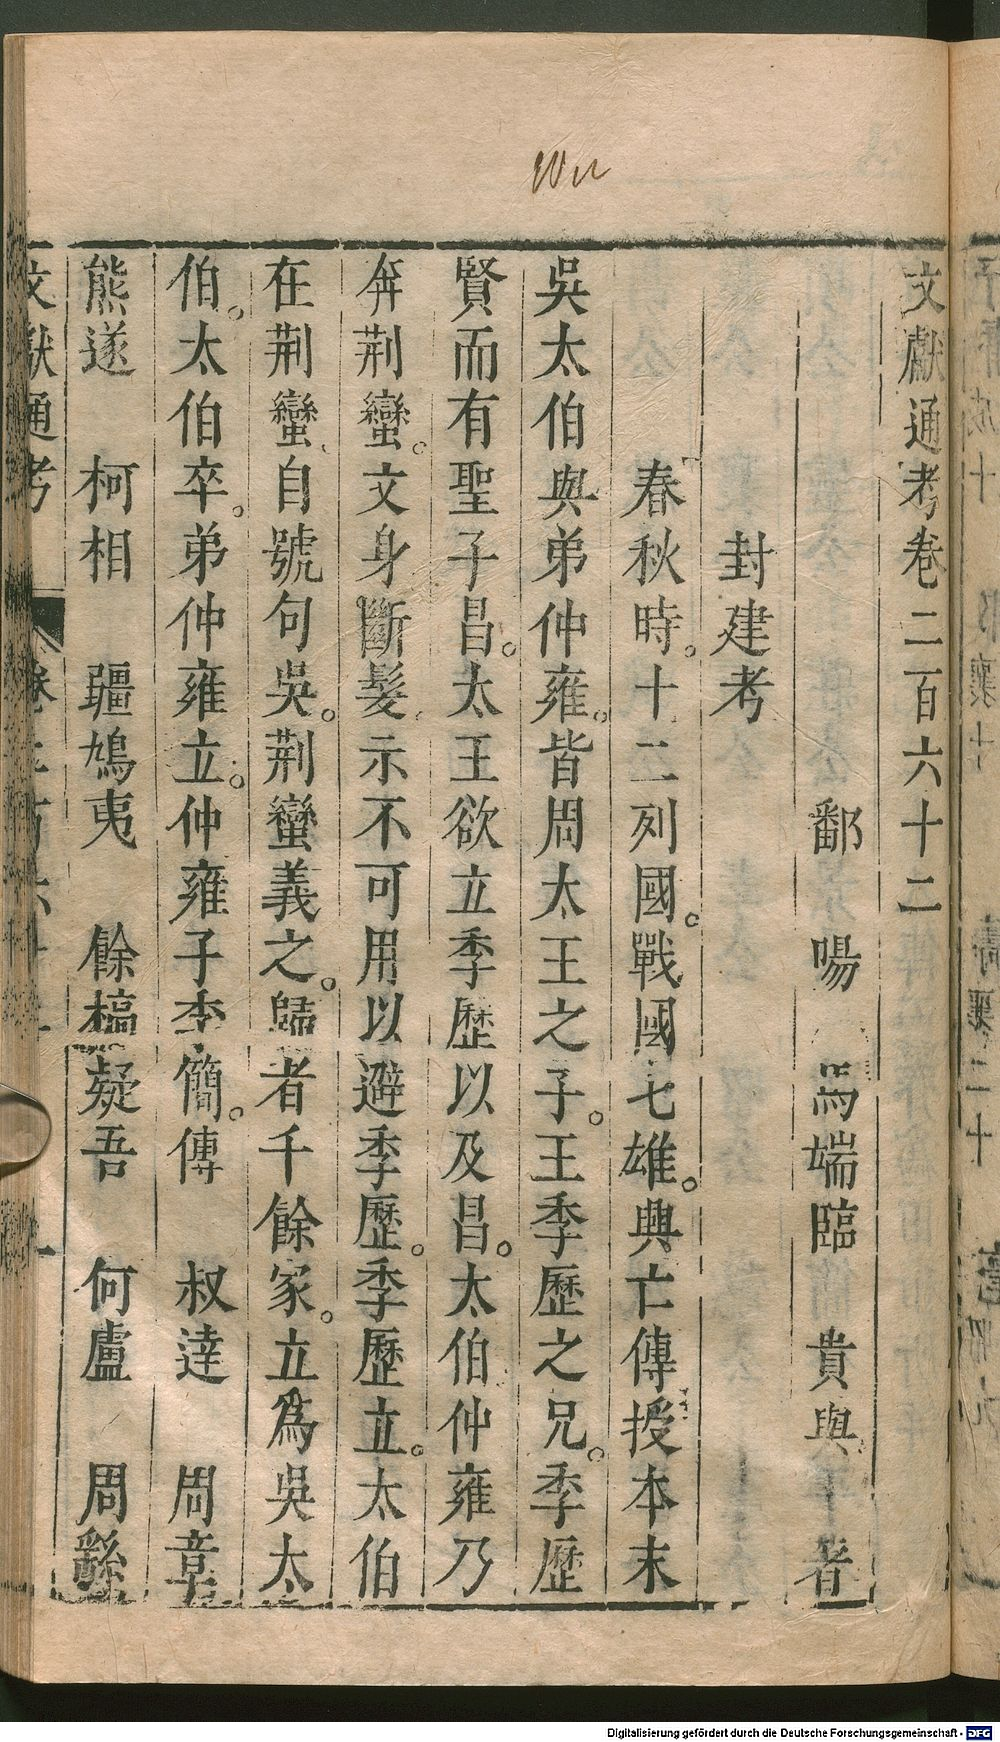 Wu
文獻通考卷二百六十二
鄱陽 馬端臨 貴與 著
封建考
春秋時。十二列國。戰國七雄。興亡傳授本末
吳太伯與弟仲雍。皆周太王之子。王季歷之兄。季歷
賢而有聖子昌。太王欲立季歷以及昌。太伯仲雍乃
奔荆蠻。文身斷髮。示不可用以避季歷。季歷立。太伯
在荆蠻、自號句吳。荆蠻義之。歸者千餘家。立為吳太
伯。太伯卒。弟仲雍立。仲雍子季簡。傳 叔逹 周章
熊遂 柯相 疆鳩夷 餘橋疑吾 柯盧 周繇
文獻通考
Digitalisierung gefördert durch die Deutsche Forschungsgemeinschaft - DFG